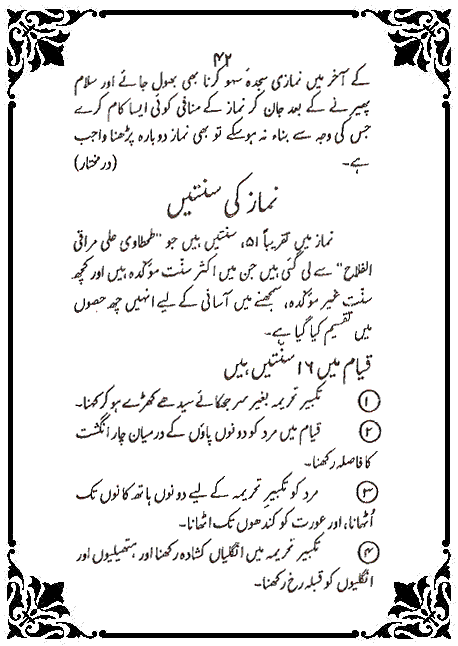 ۴۲
کے آخر میں نمازی سجدۂ سہو کرنا بھی بھول جائے اور سلام
پھیرنے کے بعد جان کر نماز کے منافی کوئی ایسا کام کرے
جس کی وجہ سے بناء نہ ہوسکے تو بھی نماز دوبارہ پڑھنا واجب
ہے۔ (درمختار)
نماز کی سنتیں
نماز میں تقریباً ۵۱، سنتیں ہیں جو "طحطاوی علی مراقی
الفلاح" سے لی گئی ہیں جن میں اکثر سنّت مؤکدہ ہیں اور کچھ
سنّتِ غیر مؤکدہ، سمجھنے میں آسانی کے لیے انہیں چھ حصوں
میں تقسیم کیا گیا ہے۔
قیام میں ۱۶ سنّتیں ہیں
۱ تکبیر تحریمہ بغیر سر جھکائے سیدھے کھڑے ہو کر کہنا۔
۲ قیام میں مرد کو دونوں پاؤں کے درمیان چار انگشت
کا فاصلہ رکھنا۔
۳ مرد کو تکبیرِ تحریمہ کے لیے دونوں ہاتھ کانوں تک
اُٹھانا، اور عورت کو کندھوں تک اٹھانا۔
۴ تکبیر تحریمہ میں انگلیاں کشادہ رکھنا اور ہتھیلیوں اور
انگلیوں کو قبلہ رخ رکھنا۔